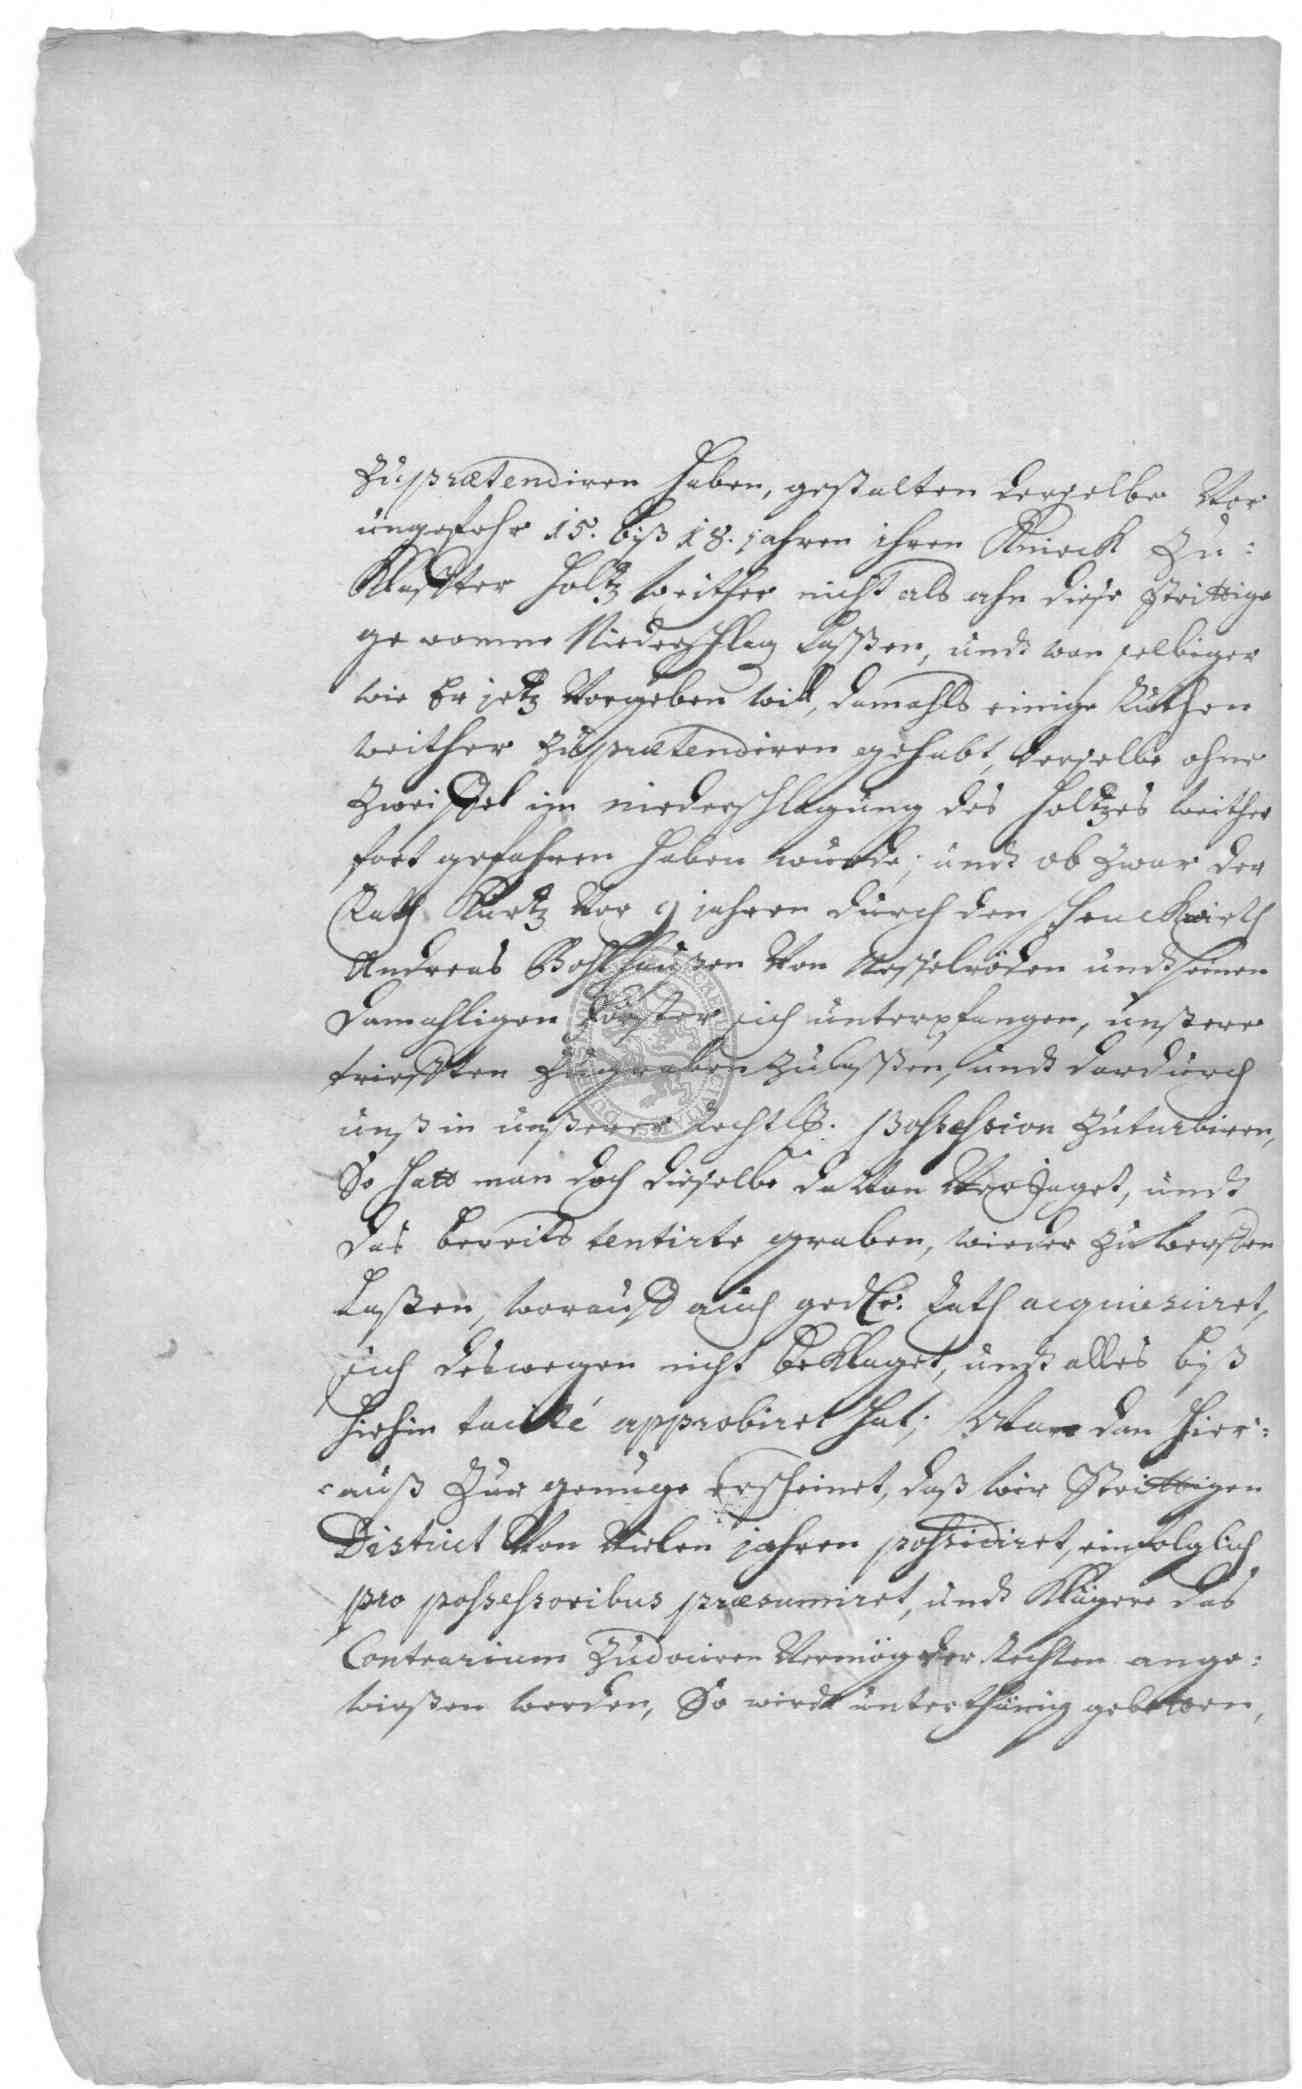 zu prætendiren haben, gestalten derselbe Vor
ungefehr 15. biß 18. jahren ihren Knick zu:
Klaffter holtz weither nicht als ahn diese strittige
ge Niederschlag laßen, undt wan selbiger
wie Er jetz Vorgeben will, damahls einige Ruthen
weither zu prætendiren gehabt, derselbe ohne
Zweiffel im niederschlagung des holtzes weither
fort gefahren haben wurde; undt ob zwar der
Rath Kurtz Vor 9 jahren durch den schenckwirth
Andreas Von Nesselröden undt seinen
damahligen förster sich unterpfangen, unßere
trießten zugraben zulaßßen, undt dardurch
unß in unßerer rechtl. possession zuturbiren,
So hatt man doch dieselbe davon Verjaget, undt
das bereits tentirte graben, wieder zuwerffen
laßen, worauff auch gedtr. Rath acquiesciret,
sich deswegen nicht beklaget, undt alles biß
hiehin tacité approbiret hat; Wan dan hier:
auß zur genuge erscheinet, daß wir Strittigen
District Von Vielen jahren possidiret, einfolglich
pro possessoribus præsumiret, undt Klägere das
Contrarium zudociren Vermög der Rechten ange:
wießen werden, So wirdt unterthänig gebetten,